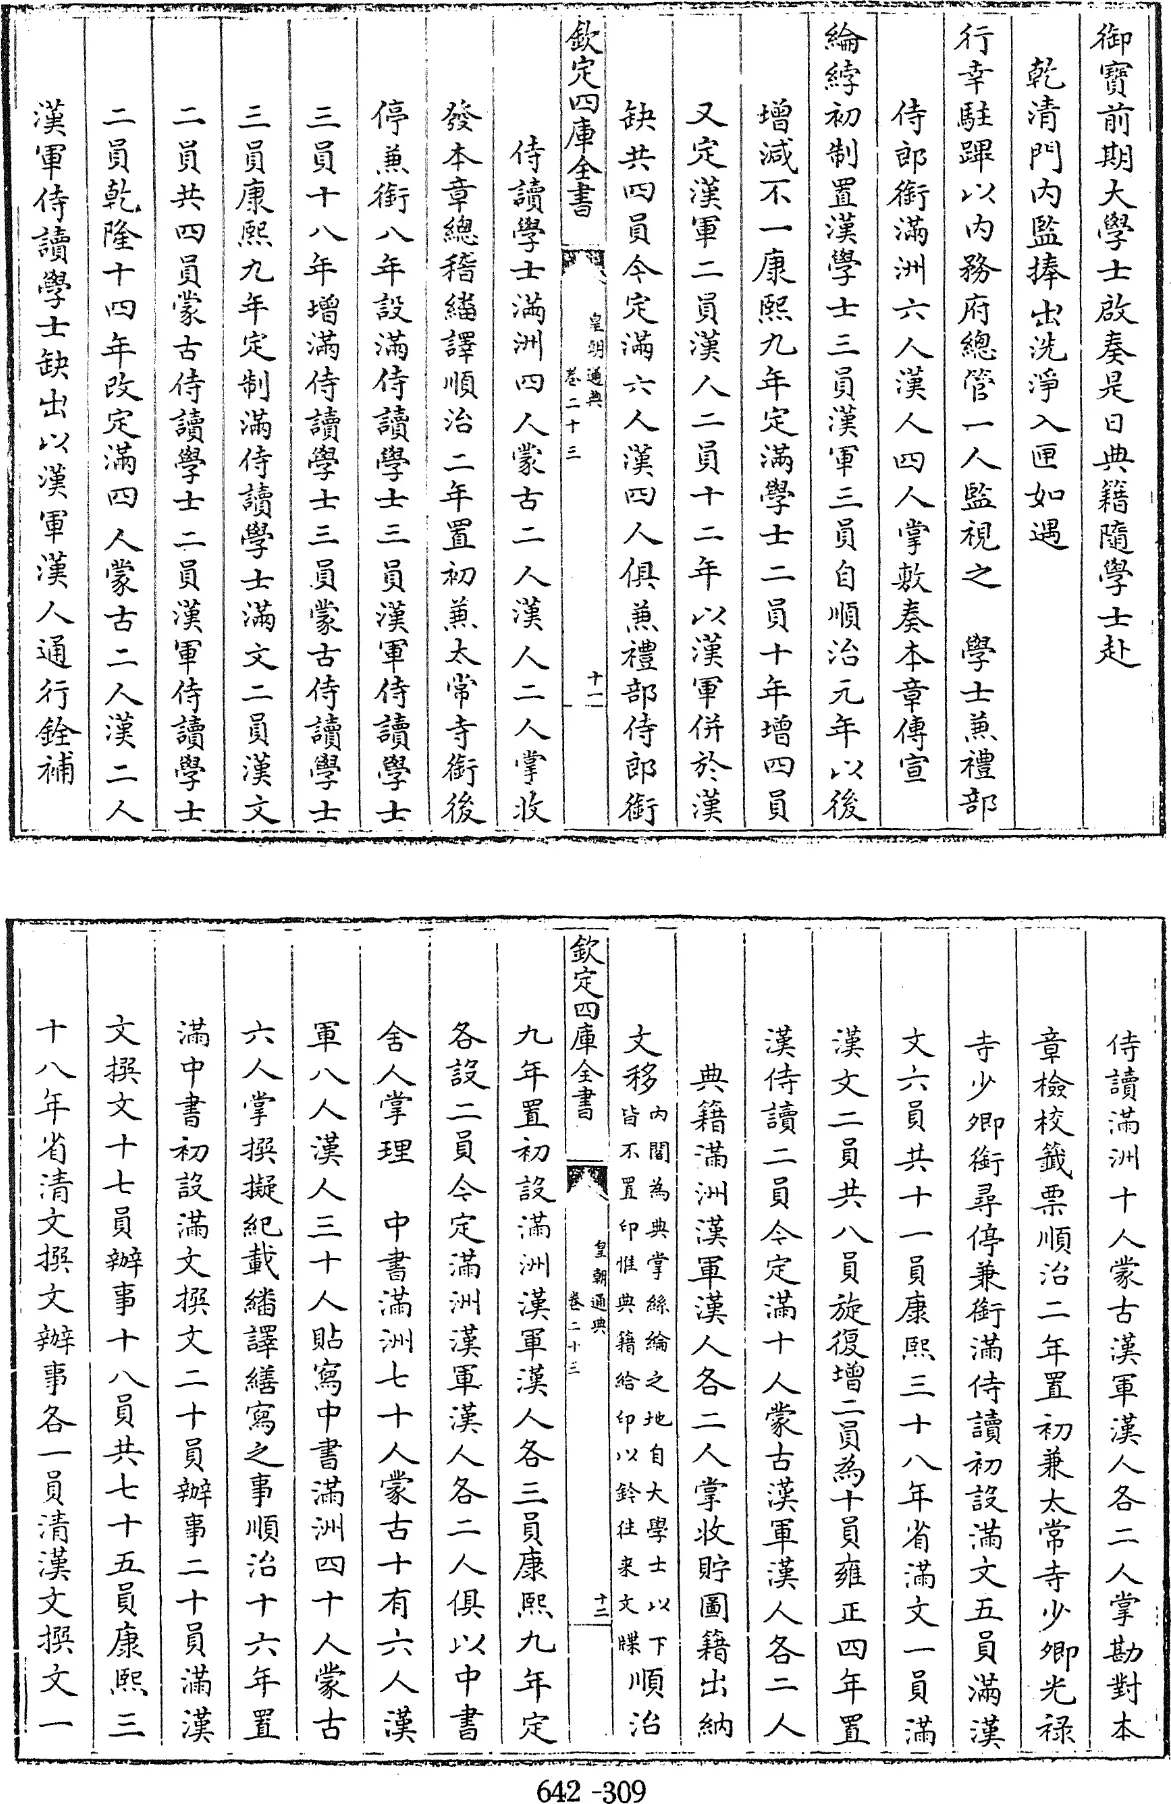 御寶前期大學士啟奏是日典籍隨學士赴
乾清門內監捧出洗淨入匣如遇
行幸駐蹕以內務府總管一人監視之　學士兼禮部
侍郎銜滿洲六人漢人四人掌敷奏本章傳宣
綸綍初制置漢學士三員漢軍三員自順治元年以後
增減不一康熙九年定滿學士二員十年增四員
又定漢軍二員漢人二員十二年以漢軍併於漢
缺共四員今定滿六人漢四人俱兼禮部侍郎銜
欽定四庫全書
皇朝通典
卷二十三
十一
侍讀學士滿洲四人蒙古二人漢人二人掌收
發本章總稽繙譯順治二年置初兼太常寺銜後
停兼銜八年設滿侍讀學士三員漢軍侍讀學士
三員十八年增滿侍讀學士三員蒙古侍讀學士
三員康熙九年定制滿侍讀學士滿文二員漢文
二員共四員蒙古侍讀學士二員漢軍侍讀學士
二員乾隆十四年改定滿四人蒙古二人漢二人
漢軍侍讀學士缺出以漢軍漢人通行銓補
侍讀滿洲十人蒙古漢軍漢人各二人掌勘對本
章檢校籤票順治二年置初兼太常寺少卿光祿
寺少卿銜尋停兼銜滿侍讀初設滿文五員滿漢
文六員共十一員康熙三十八年省滿文一員滿
漢文二員共八員旋復增二員為十員雍正四年置
漢侍讀二員今定滿十人蒙古漢軍漢人各二人
典籍滿洲漢軍漢人各二人掌收貯圖籍出納
文移內閣為典掌絲綸之地自大學士以下皆不置印惟典籍給印以鈐往来文牒順治
欽定四庫全書
皇朝通典
卷二十三
十二
九年置初設滿洲漢軍漢人各三員康熙九年定
各設二員今定滿洲漢軍漢人各二人俱以中書
舍人掌理　中書滿洲七十人蒙古十有六人漢
軍八人漢人三十人貼寫中書滿洲四十人蒙古
六人掌撰擬紀載繙譯繕寫之事順治十六年置
滿中書初設滿文撰文二十員辦事二十員滿漢
文撰文十七員辦事十八員共七十五員康熙三
十八年省清文撰文辦事各一員清漢文撰文一
642-309